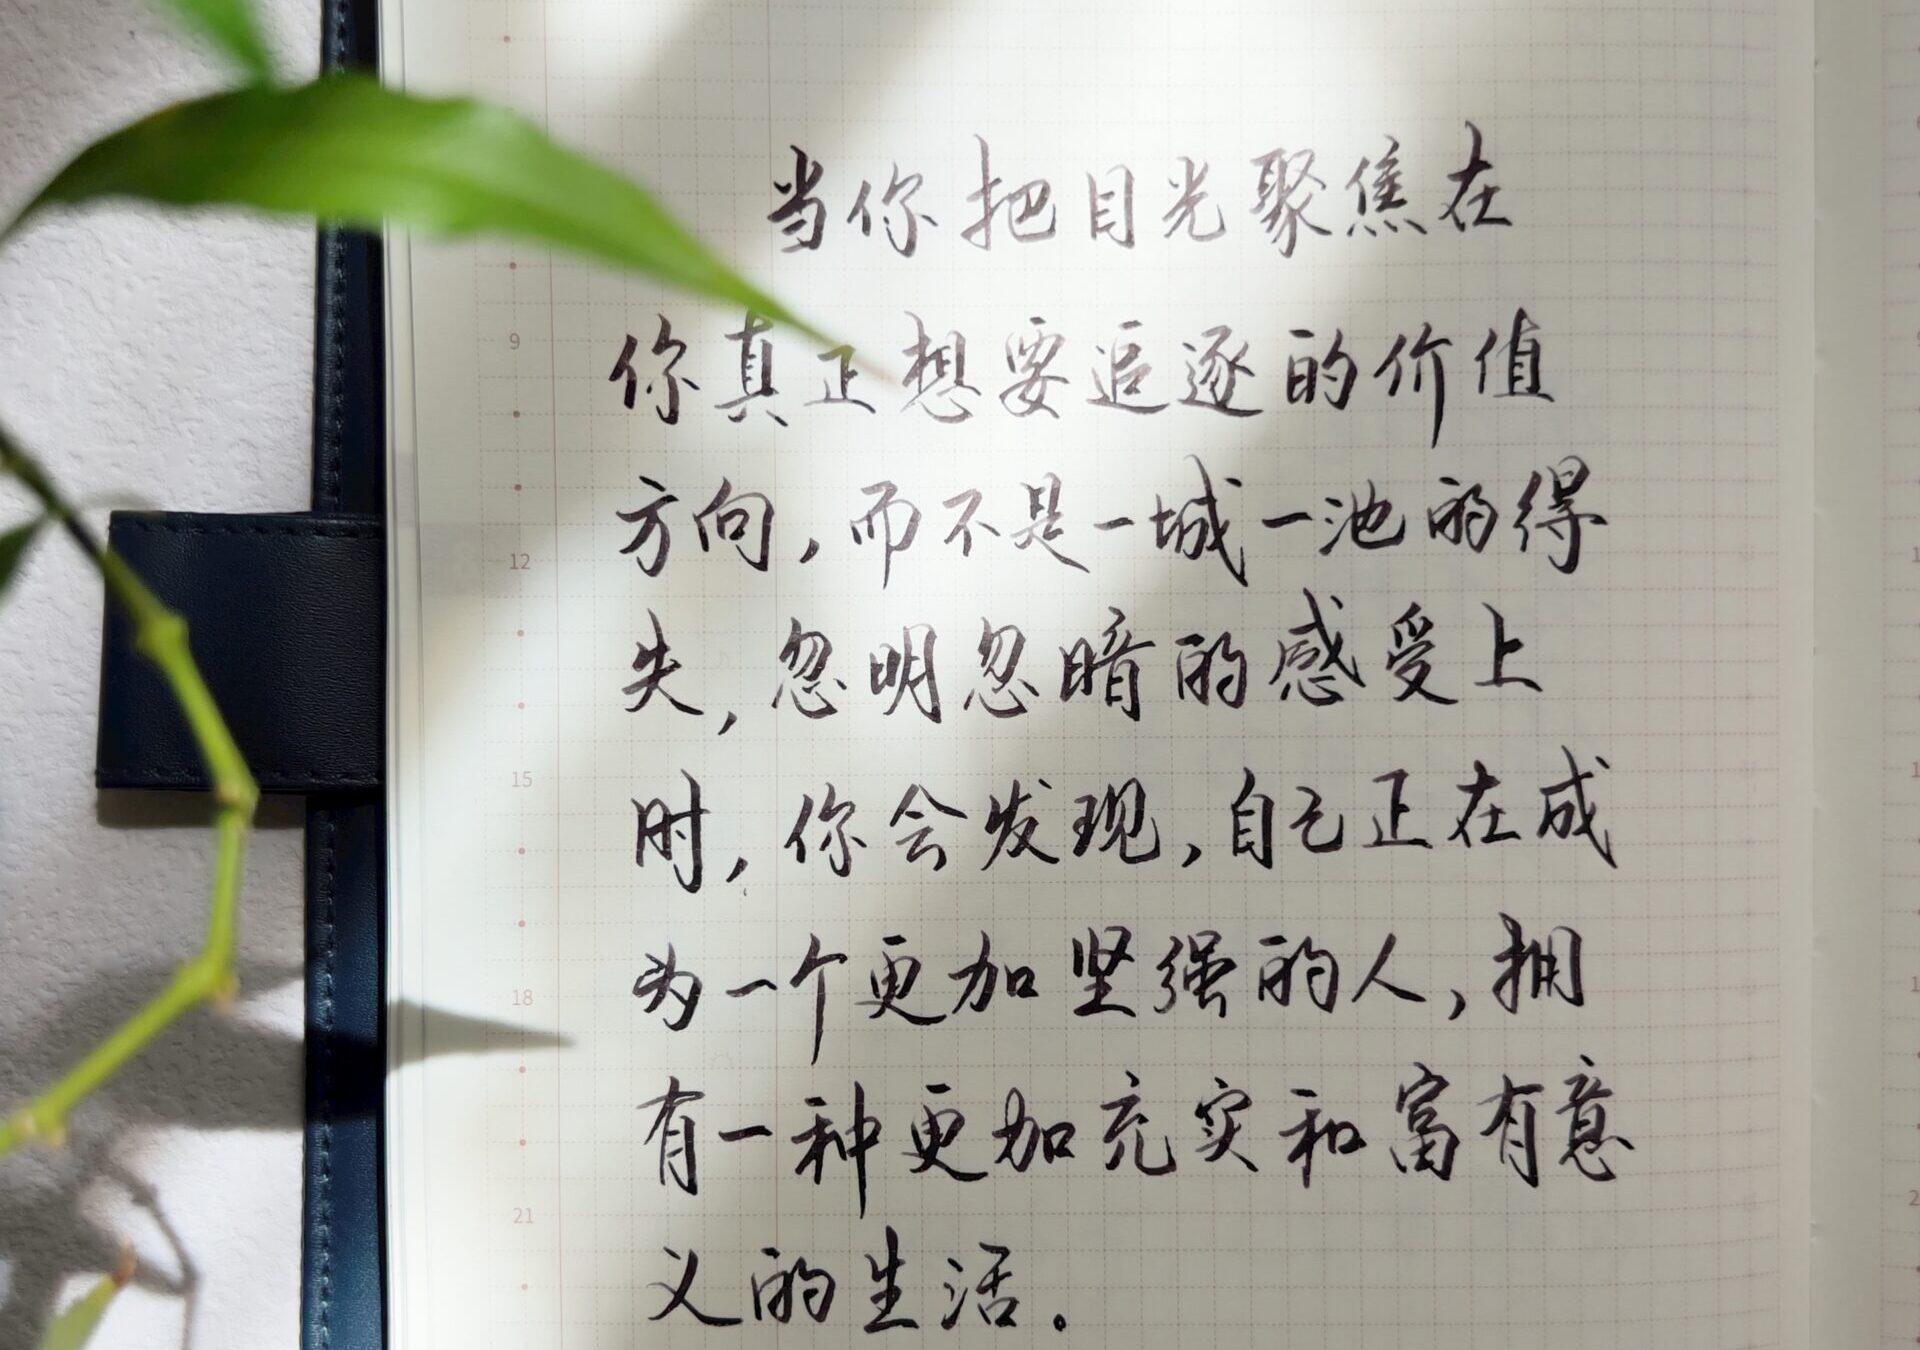 当你把目光聚焦在
你真正想要追逐的价值
方向，而不是一城一池的得
失，忽明忽暗的感受上
时，你会发现，自己正在成
为一个更加坚强的人，拥
有一种更加充实和富有意
义的生活。
9
12
15
18
21